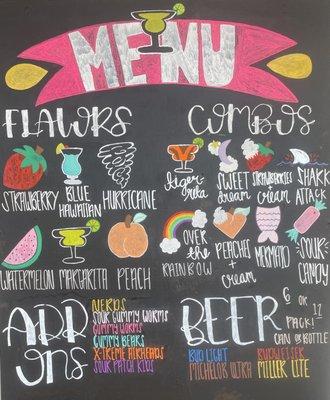 MENU
FLAVORS
STRAWBERRY
BLUE
HAWAIIAN
HURRICANE
WATERMELON
MARGARITA
PEACH
COMBOS
SWEET
dream
STRAWBERRIES
CREAM
SHARK
ATTACK
OVER
the
RAINBOW
PEACHES
+
cream
MERMAID
SOUR
CANDY
ADD
ONS
NERDS
SOUR GUMMY WORMS
GUMMY WORMS
GUMMY BEARS
X-TREME AIRHEADS
SOUR PATCH KIDS
BEER
6 OR 12
PACK!
CAN OR BOTTLE
BUD LIGHT
MICHELOB ULTRA
BUDWEISER
MILLER LITE